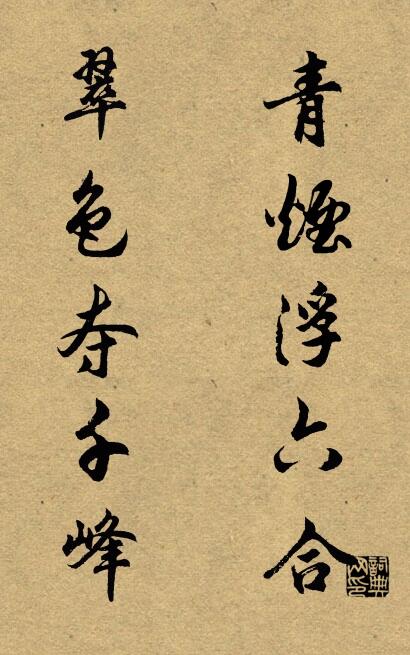 青煙浮六合
翠色夺千峰